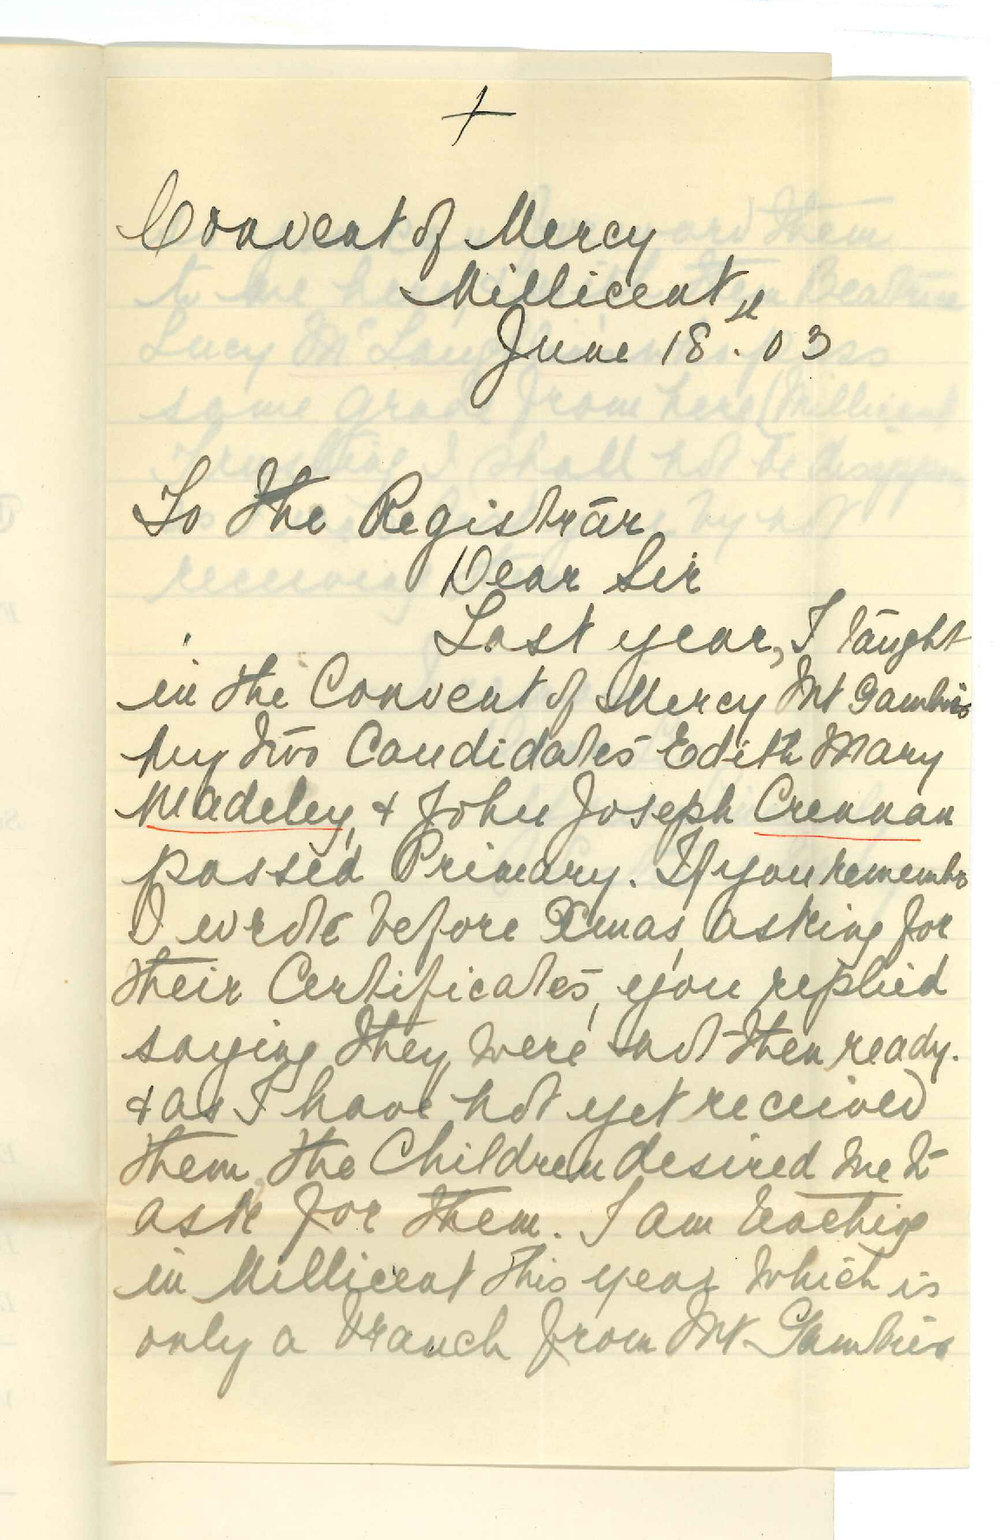 +
Convent of Mercy
Millicent
June 18th. 03
To the Registrar
Dear Sir
Last year, I taught
in the Convent of Mercy Mt Gambier
My two Candidates Edith Mary
Madeley, & John Joseph Crennan
passed Primary. If you remember
I wrote before Xmas, asking for
their Certificates, you replied
saying they were not then ready.
& as I have not yet received
them, the Children desired me to
ask for them. I am teaching
in Millicent this year which is
only a branch from Mt Gambier